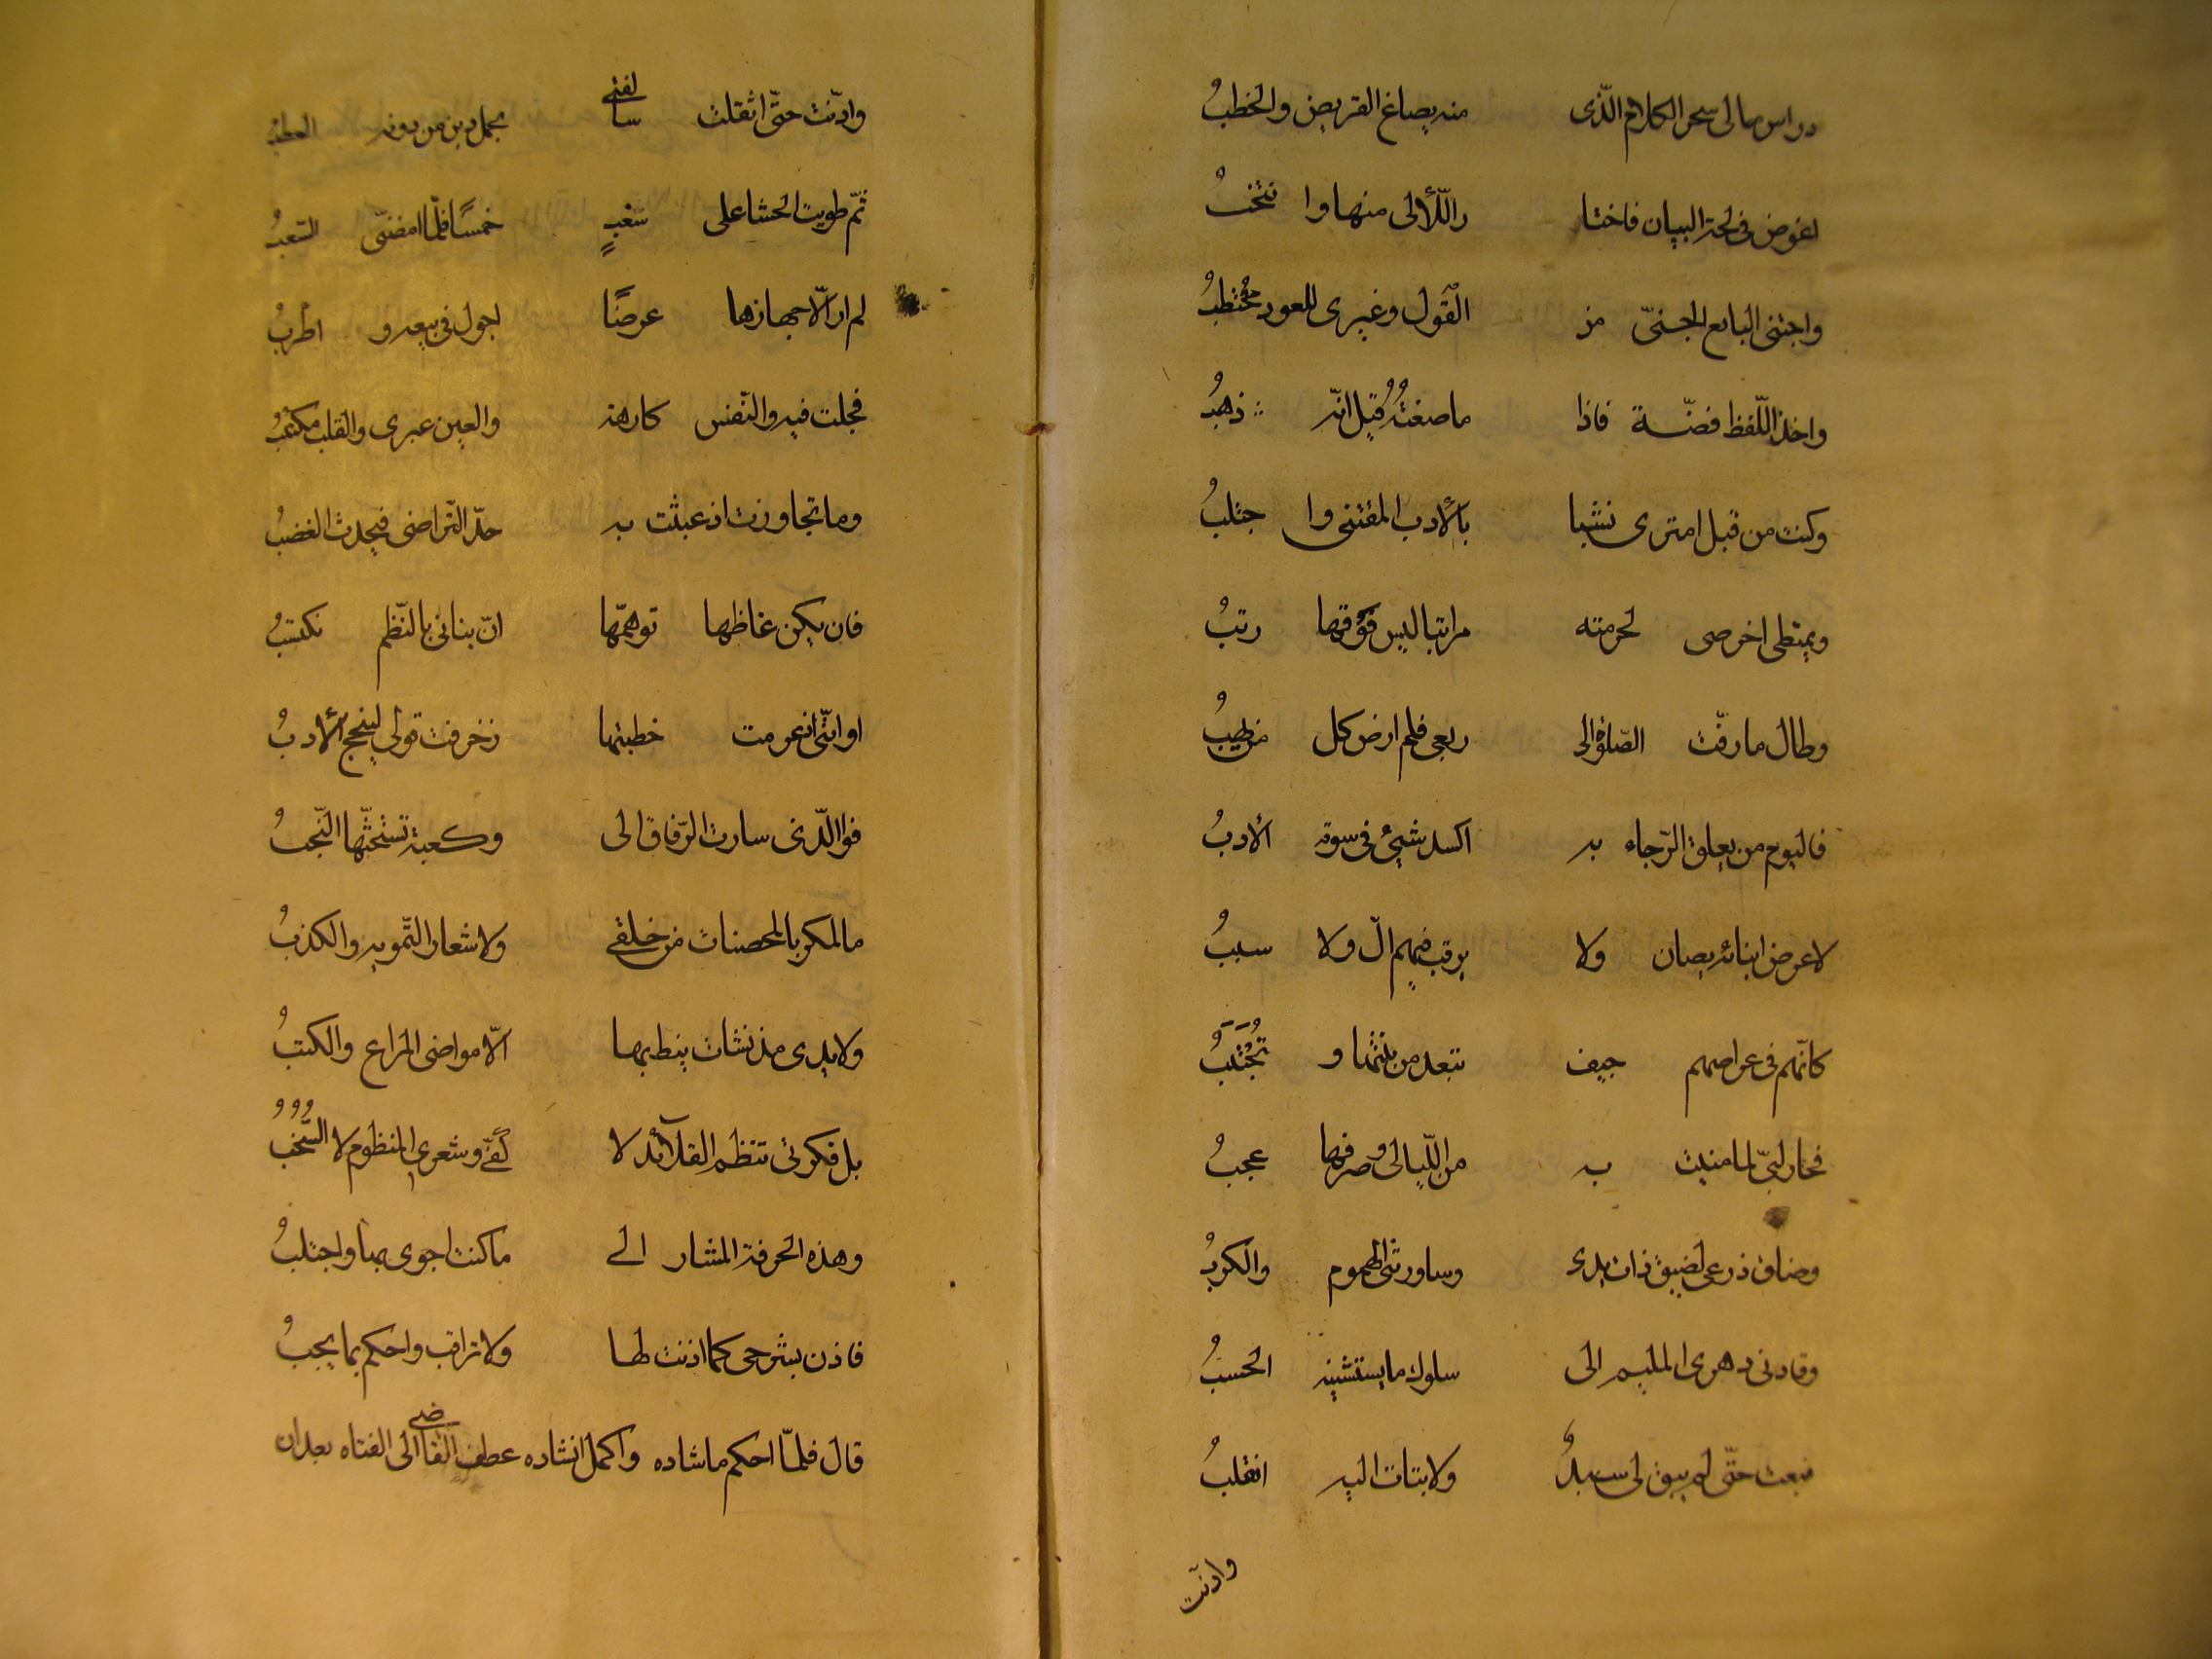 وراس مالى سحر الكلام الّذى منه يصاغ القريض والخطبُ
اغوض فى لجة البيان فاختار اللّألى منها وانتخبُ
واجتنى اليانع الجنىّ من القول وغيرى للعود محتطبُ
واخذ اللّفظ فضّة فاذا ما صغتُهُ قيل انّه ذهبُ
وكنت من قبل امترى نشبا بالأدب المقتنى واجتلبُ
ويمتطى اخمصى لحرمته مراتبا ليس فوقها رتبُ
وطال ما زفّت الصّلوة الى ربعى فلم ارض كل من يهبُ
فاليوم من يعلق الرّجاء به اكسد شيئ فى سوقه الأدبُ
لا عرض ابنائه يصان ولا يرقب فيهم الّ ولا سببُ
كانّهم فى عراصهم جيف يبعد من نتنها وتُجْتَنَبُ
فحار لبّى لما منيت به من اللّيالى وصرفها عجبُ
وضاق ذرعى لضيق ذات يدى وساورتنى الهموم والكربُ
وقادنى دهرى المليم الى سلوك ما يستشينه الحسبُ
فبعت حتّى لم يبق لى سبدٌ ولا بتات اليه انقلبُ
وادّنت
وادّنت حتّى اثقلت سالفتى بحمل دين من دونه العطبُ
ثمّ طويت الحشا على سغبٍ خمسًا فلمّا امضنّى السّغبُ
لم ار الّا جهازها عرضًا اجول فى بيعه و اطربُ
فجلت فيه والنّفس كارهة والعين عبرى والقلب مكتئبُ
وما تجاوزت اذ عبثت به حدّ التّراضى فيحدث الغضبُ
فان يكن غاظها توهمّها انّ بنانى بالنّظم تكتسبُ
او انّنى اذ عزمت خطبتها زخرفت قولى لينجح الأدبُ
فوالّذى سارت الرّفاق الى وكعبة تستحثّها النّجبُ
ما المكر بالمحصنات من خلقى ولا شعار التّمويه والكذبُ
ولا يدى مذ نشات ينط بها الّا مواضى اليراع والكتبُ
بل فكرتى تنظم القلآئد لا كفّى وشعرى المنظوم لا السُّخُبُ
وهذه الحرفة المشار الى ما كنت احوى بها واجتلبُ
فاذن بشرحى كما اذنت لها ولا تراقب واحكم بما يجبُ
قال فلمّا احكم ما شاده واكمل انشاده عطف القاضى الى الفتاه بعد ان